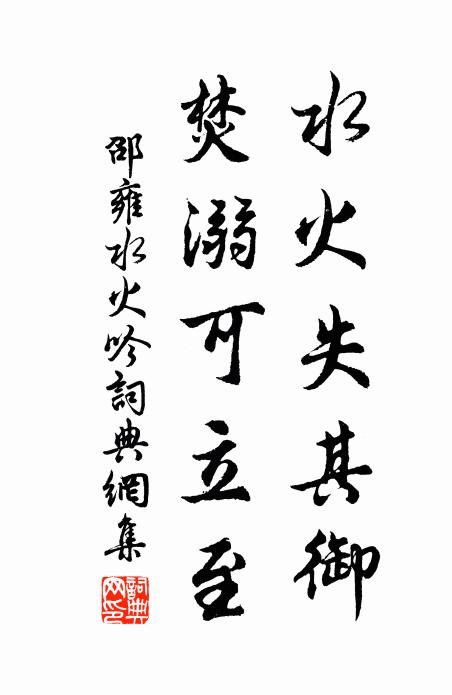 水火失其御
焚溺可立至
邵雍水火吟詞典網集
詞典
网印